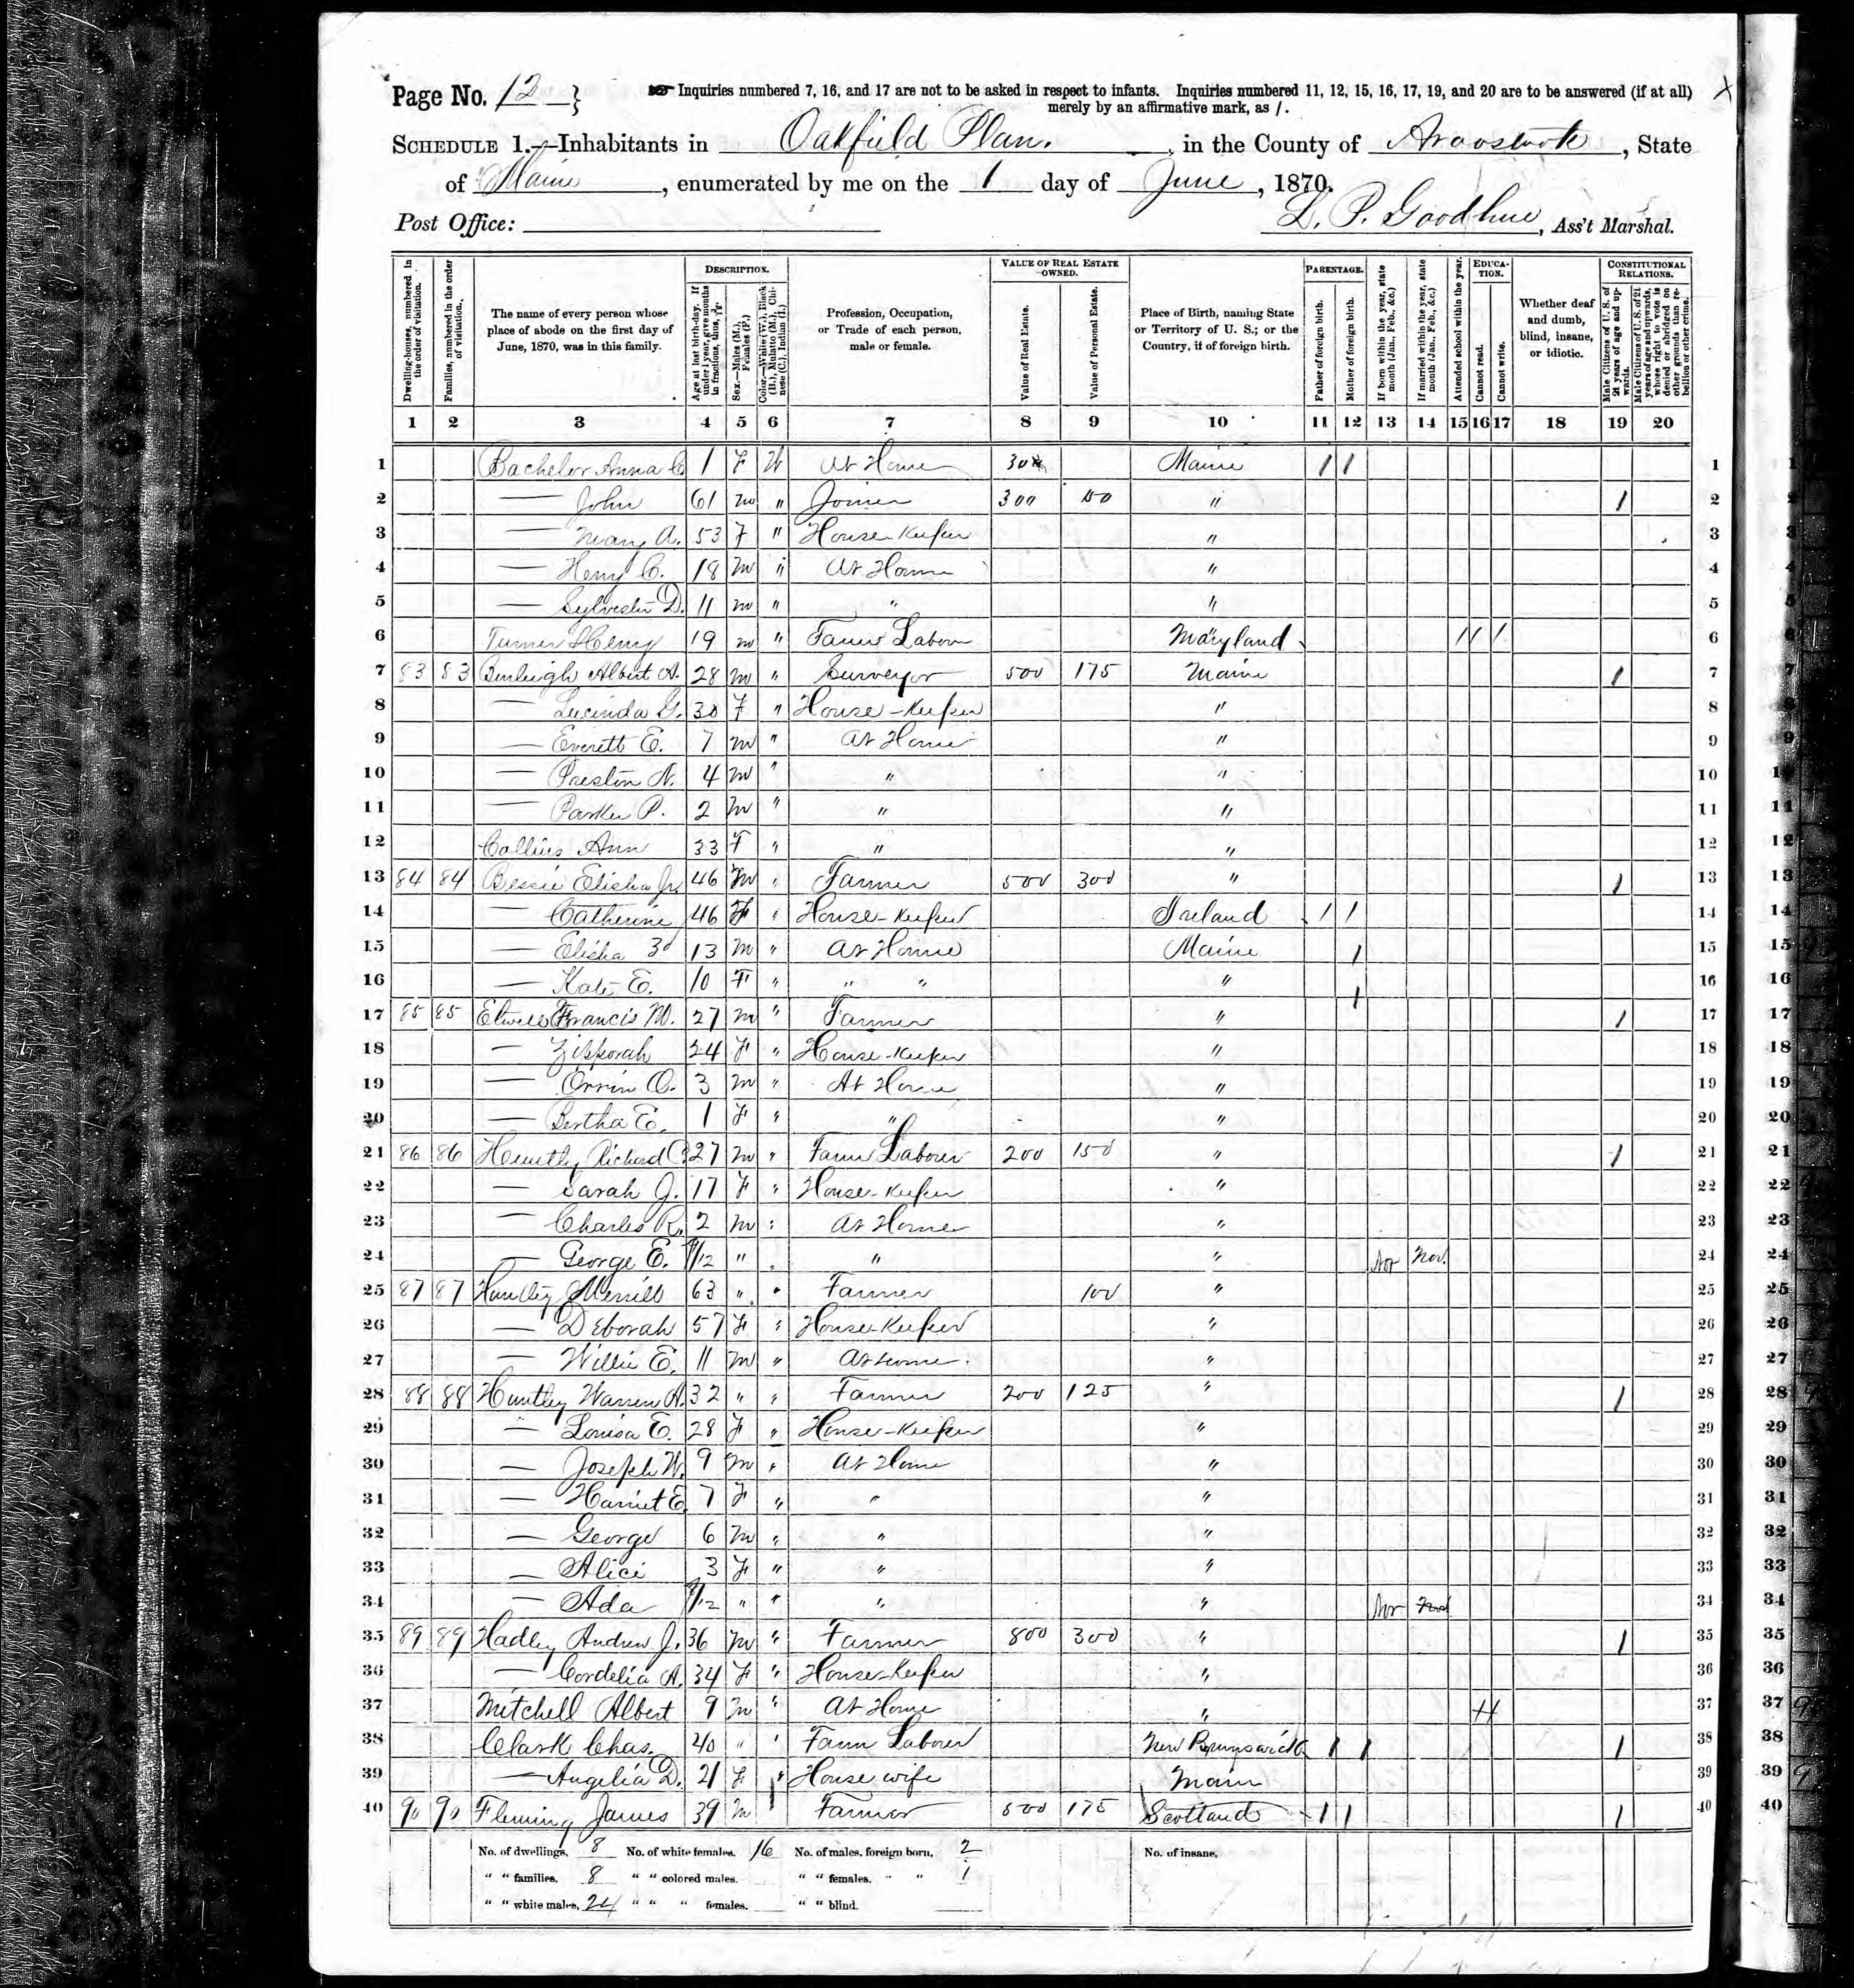 Page No. 12 } Inquiries numbered 7, 16, and 17 are not to be asked in respect to infants. Inquiries numbered 11, 12, 15, 16, 17, 19, and 20 are to be answered (if at all) X
merely by an affirmative mark, as /.
SCHEDULE 1.—Inhabitants in Oakfield Plan. , in the County of Aroostook , State
of Maine , enumerated by me on the 1 day of June , 1870.
Post Office: L. P. Goodhue , Ass't Marshal.
Dwelling-houses, numbered in the order of visitation.
Families, numbered in the order of visitation.
The name of every person whose place of abode on the first day of June, 1870, was in this family.
DESCRIPTION.
Age at last birth-day. If under 1 year, give months in fractions, thus, 3/12.
Sex.—Males (M.), Females (F.)
Color.—White (W.), Black (B.), Mulatto (M.), Chinese (C.), Indian (I.)
Profession, Occupation, or Trade of each person, male or female.
VALUE OF REAL ESTATE OWNED.
Value of Real Estate.
Value of Personal Estate.
Place of Birth, naming State or Territory of U. S.; or the Country, if of foreign birth.
PARENTAGE.
Father of foreign birth.
Mother of foreign birth.
If born within the year, state month (Jan., Feb., &c.)
If married within the year, state month (Jan., Feb., &c.)
Attended school within the year.
EDUCATION.
Cannot read.
Cannot write.
Whether deaf and dumb, blind, insane, or idiotic.
CONSTITUTIONAL RELATIONS.
Male Citizens of U. S. of 21 years of age and upwards.
Male Citizens of U. S. of 21 years of age and upwards, whose right to vote is denied or abridged on other grounds than rebellion or other crime.
1 2 3 4 5 6 7 8 9 10 11 12 13 14 15 16 17 18 19 20
1 Bachelor Anna C. 1 F W At Home 300 Maine / / 1
2 — John 61 m " Joiner 300 " / 2
3 — Mary A. 53 F " House-Keeper " 3
4 — Henry C. 18 m " At Home " 4
5 — Sylvester D. 11 m " " " 5
6 Turner Henry 19 m " Farm Labour Maryland / / / 6
7 83 83 Burleigh Albert A. 28 m " Surveyor 500 175 Maine / 7
8 — Lucinda G. 30 F " House-Keeper " 8
9 — Everett E. 7 m " At Home " 9
10 — Preston N. 4 m " " " 10
11 — Parker P. 2 m " " " 11
12 Collins Ann 33 F " " " 12
13 84 84 Bessie Elisha Jr. 46 m " Farmer 500 300 " / 13
14 — Catherine 46 F " House-Keeper Ireland / / 14
15 — Elisha 3d 13 m " At Home Maine / 15
16 — Kate E. 10 F " " " " / 16
17 85 85 Elwell Francis M. 27 m " Farmer " / 17
18 — Zipporah 24 F " House-Keeper " 18
19 — Orrin O. 3 m " At Home " 19
20 — Bertha E. 1 F " " " 20
21 86 86 Huntley Richard 27 m " Farm Labourer 200 150 " / 21
22 — Sarah J. 17 F " House-Keeper " 22
23 — Charles R. 2 m " At Home " 23
24 — George E. /12 " " " " Nov. 24
25 87 87 Huntley Merrill 63 " " Farmer 100 " 25
26 — Deborah 57 F " House-Keeper " 26
27 — Willie E. 11 m " At Home " 27
28 88 88 Huntley Warren A. 32 " " Farmer 200 125 " / 28
29 — Louisa E. 28 F " House-Keeper " 29
30 — Joseph W. 9 m " At Home " 30
31 — Harriet E. 7 F " " " 31
32 — George 6 m " " " 32
33 — Alice 3 F " " " 33
34 — Ada /12 " " " " Nov 34
35 89 89 Hadley Andrew J. 36 m " Farmer 800 300 " / 35
36 — Cordelia A. 34 F " House-Keeper " 36
37 Mitchell Albert 9 m " At Home " 37
38 Clark Chas. 40 " " Farm Labourer New Brunswick / / / 38
39 — Angelia D. 21 F " House wife Maine 39
40 90 90 Fleming James 39 m " Farmer 500 175 Scotland / / / 40
No. of dwellings, 8 No. of white females, 16 No. of males, foreign born, 2 No. of insane,
" " families, 8 " " colored males, " " females, " " 1
" " white males, 24 " " " females, " " blind,